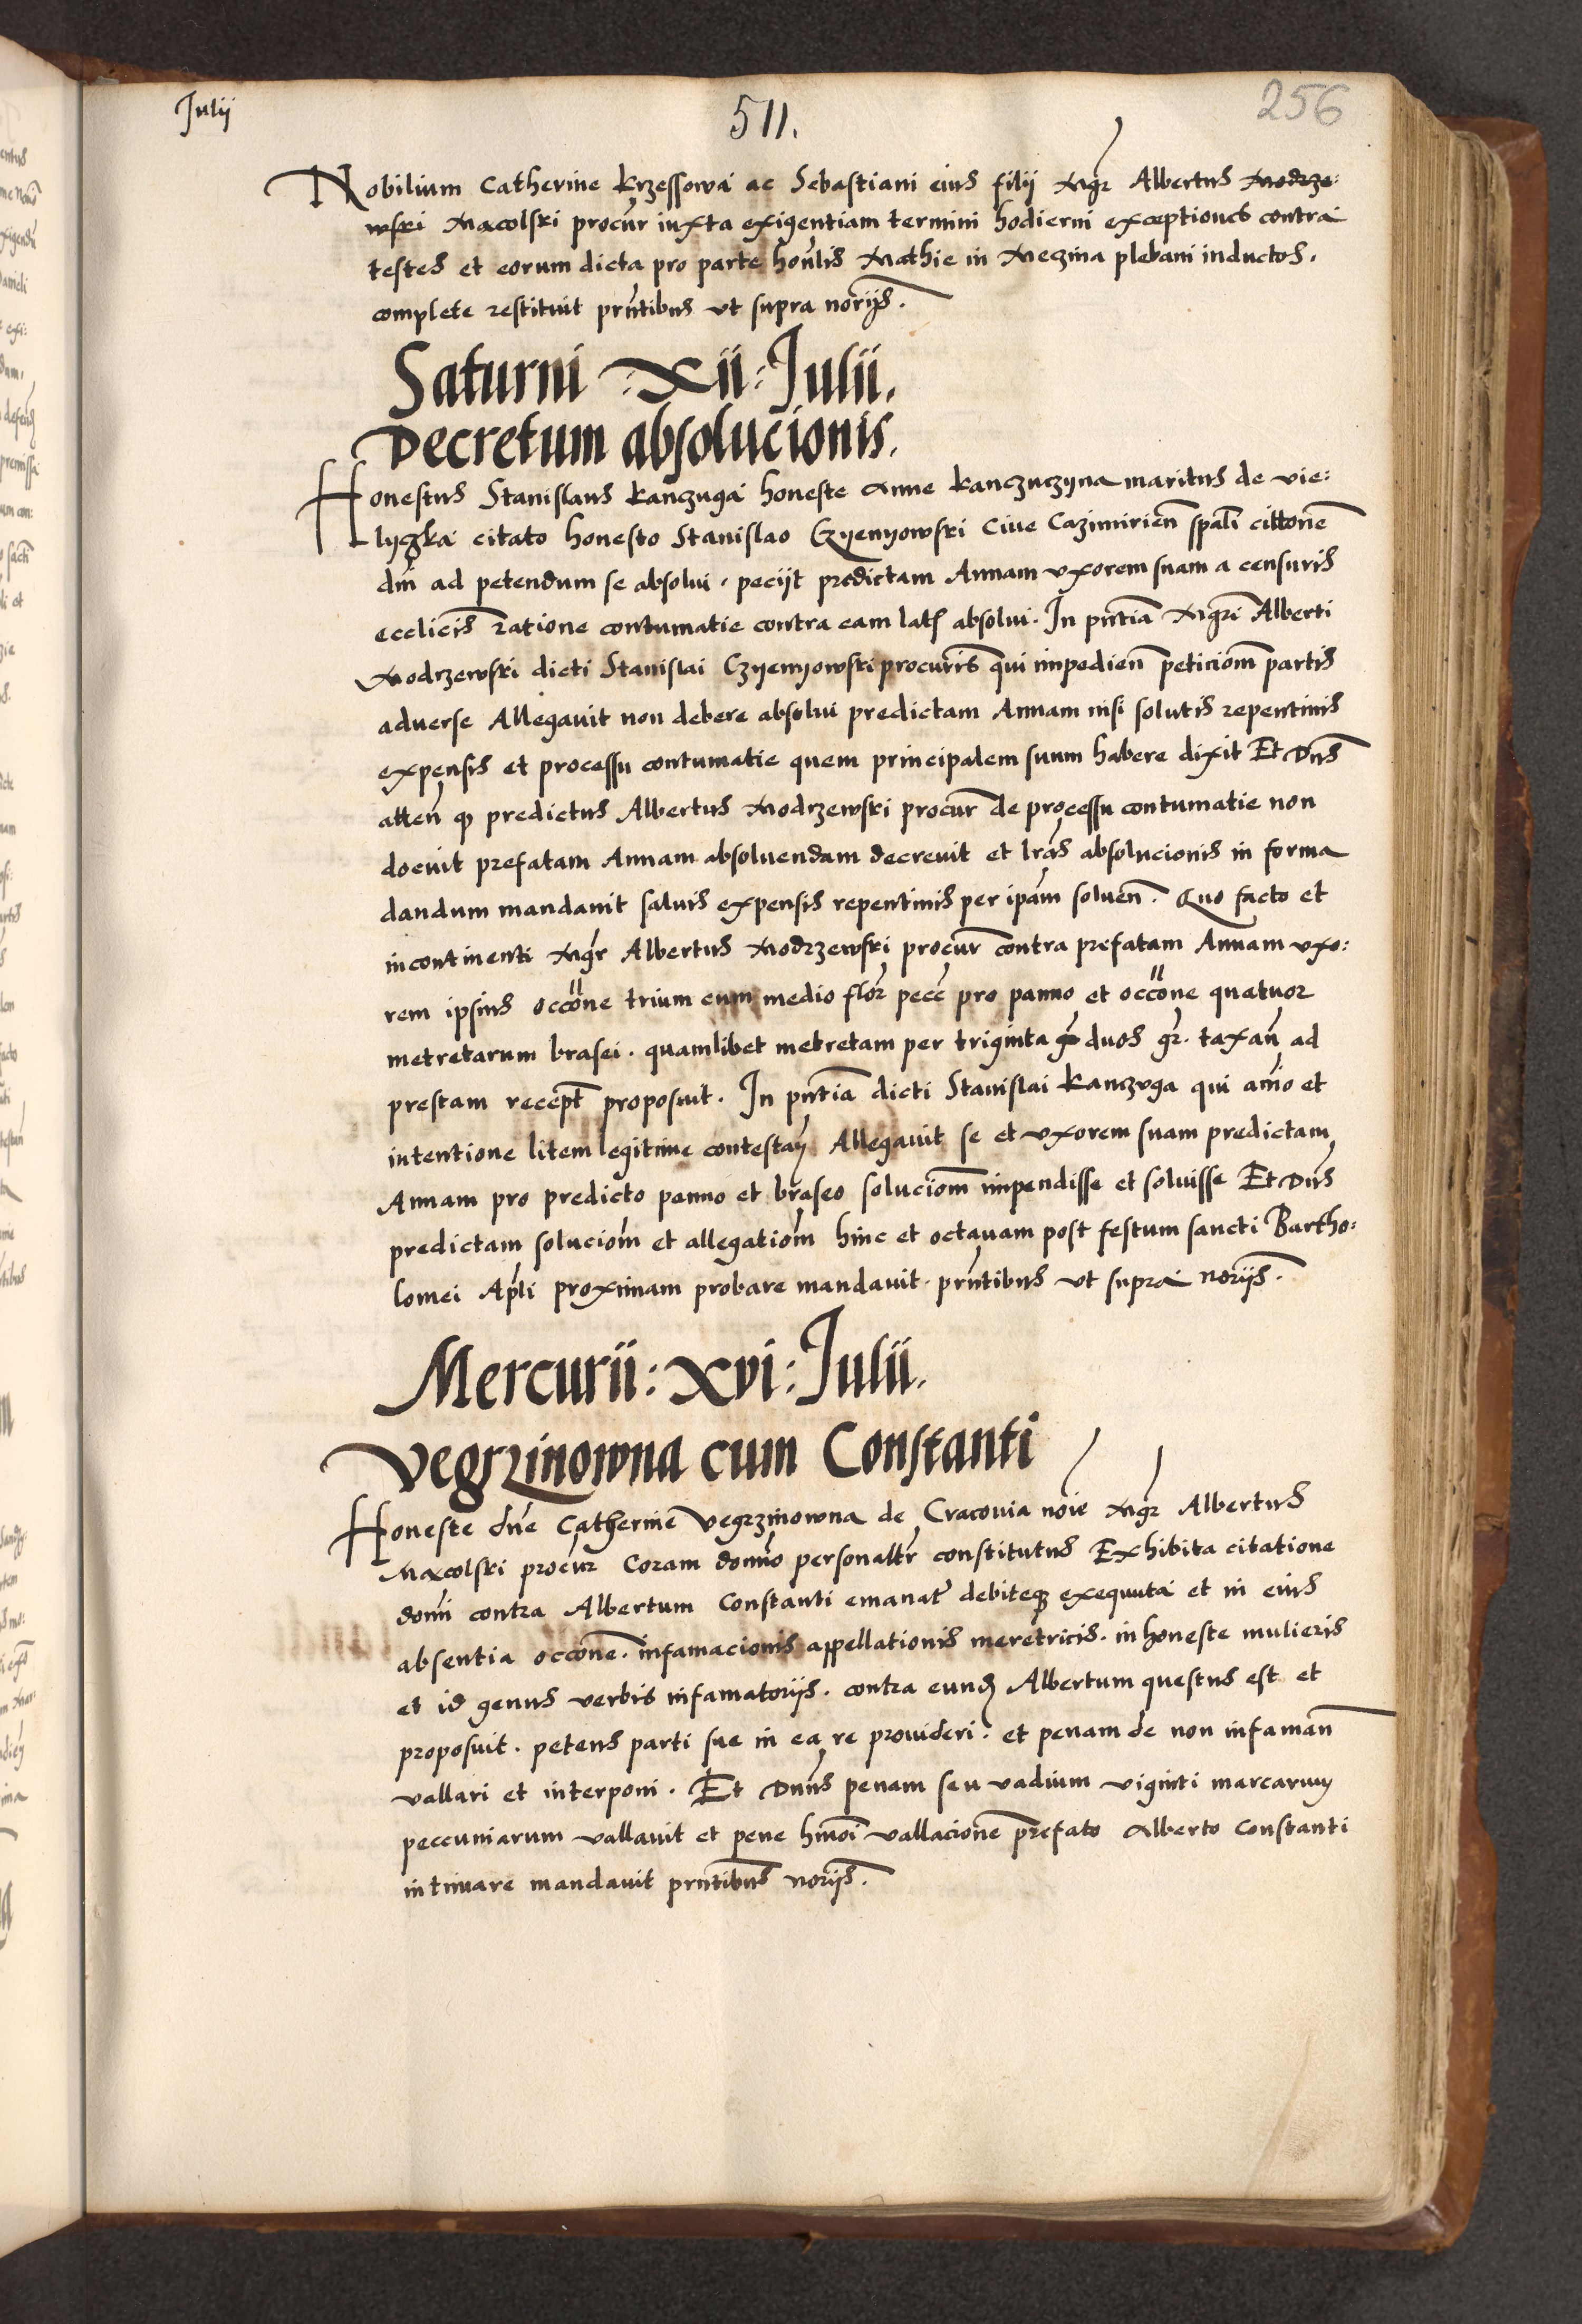 Julii
511.
256
Nobilium Catherine Krzessowa ac Sebastiani eius filij Mgr Albertus Modrze:
wski Maxolski procur iuxta exigentiam termini hodierni exceptiones contra
testes et eorum dicta pro parte honlis Mathie in Meczina plebani inductos.
complete restituit pntibus ut supra norijs.
Saturni : xii : Julii.
Decretum absolucionis.
Honestus Stanislaus Kanczuga honeste Anne Kanczuczyna maritus de Vie:
lyczka citato honesto Stanislao Czyemyowski Ciue Cazimirien spali cittone
dni ad petendum se absolui. pecijt predictam Annam vxorem suam a censuris
ecclicis ratione contumatie contra eam lat absolui. In pntia Mgri Alberti
Modrzewski dicti Stanislai Czyemyowski procuris qui impedien peticiom partis
aduerse Allegauit non debere absolui predictam Annam nisi solutis repentinis
expensis et processu contumatie quem principalem suum habere dixit Et Dns
atten q predictus Albertus Modrzewski procur de processu contumatie non
docuit prefatam Annam absoluendam decreuit et lras absolucionis in forma
dandum mandauit saluis expensis repentinis per ipam soluen. Quo facto et
incontinenti Mgr Albertus Modrzewski procur contra prefatam Annam vxo:
rem ipsius occone trium cum medio flor pecc pro panno et occone quatuor
metretarum brasei. quamlibet metretam per triginta gr duos gr. taxan ad
prestam recept proposuit. In pntia dicti Stanislai Kanczuga qui aio et
intentione litem legitime contestan Allegauit se et vxorem suam predictam
Annam pro predicto panno et braseo soluciom impendisse et soluisse Et Dns
predictam soluciom et allegatiom hinc et octauam post festum sancti Bartho:
lomei Apli proximam probare mandauit. pntibus ut supra norijs.
Mercurii : xvi : Julii.
Vegrzinowna cum Constanti
Honeste dne Catherine Vegrzinowna de Cracouia noie Mgr Albertus
Maxolski procur Coram domno personaltr constitutus Exhibita citatione
domi contra Albertum Constanti emanat debiteq exequuta et in eius
absentia occone. infamacionis appellationis meretricis. inhoneste mulieris
et id genus verbis infamatorijs. contra eund Albertum questus est et
proposuit. petens parti sue in ea re prouideri. et penam de non infaman
vallari et interponi. Et Dnus penam seu vadium viginti marcarum
peccuniarum vallauit et pene hmoi vallacione prefato Alberto Constanti
intimare mandauit pntibus norijs.